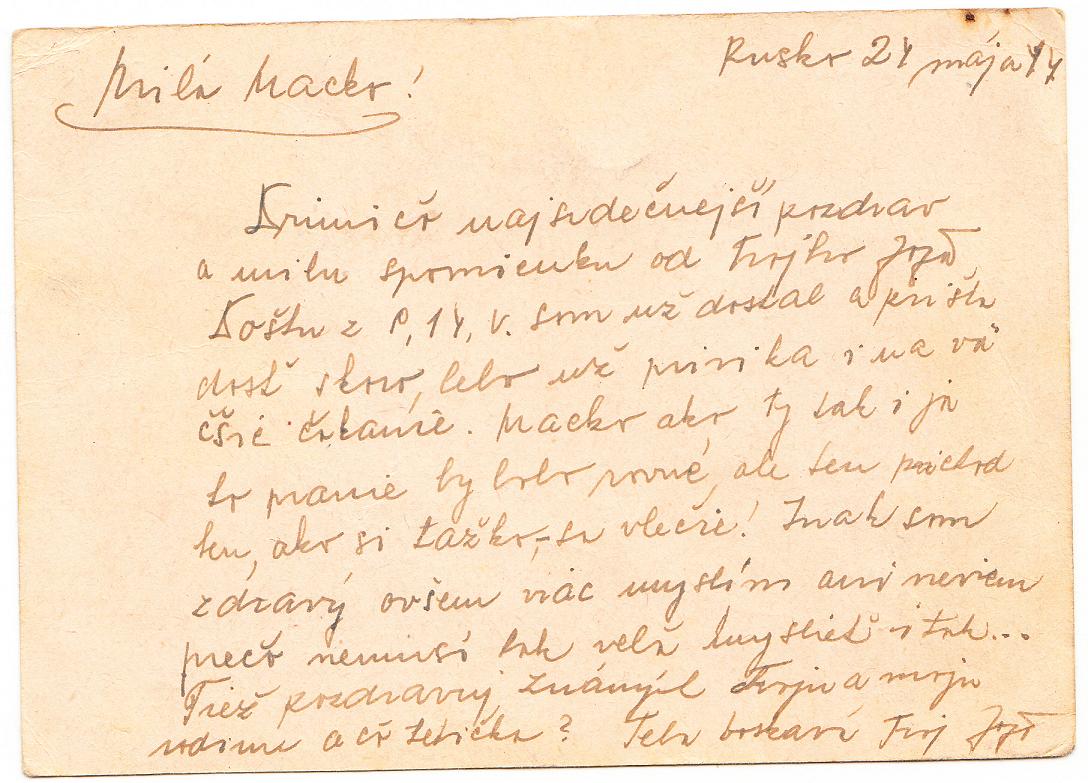 Rusko 24 mája 44
Milá Macko!
najsrdečnejší pozdrav
a milu spomienku od Tvojho Joža
Poštu z 14, V. som už dostal a príšla
dosť skoro, lebo už privika i na vä
čšie čakanie. Macko ako ty tak i ja
to pranie by bolo rovné, ale ten
ako si ťažko, sa vlečie! Inak som
zdravý ovšem viac myslím ani neviem
prečo nemusí tak veľa myslieť i tak...
Tiež pozdravuj známých Tvoju a moju
rodinu a čo tetička? Teba bozkáva Tvoj Jožo